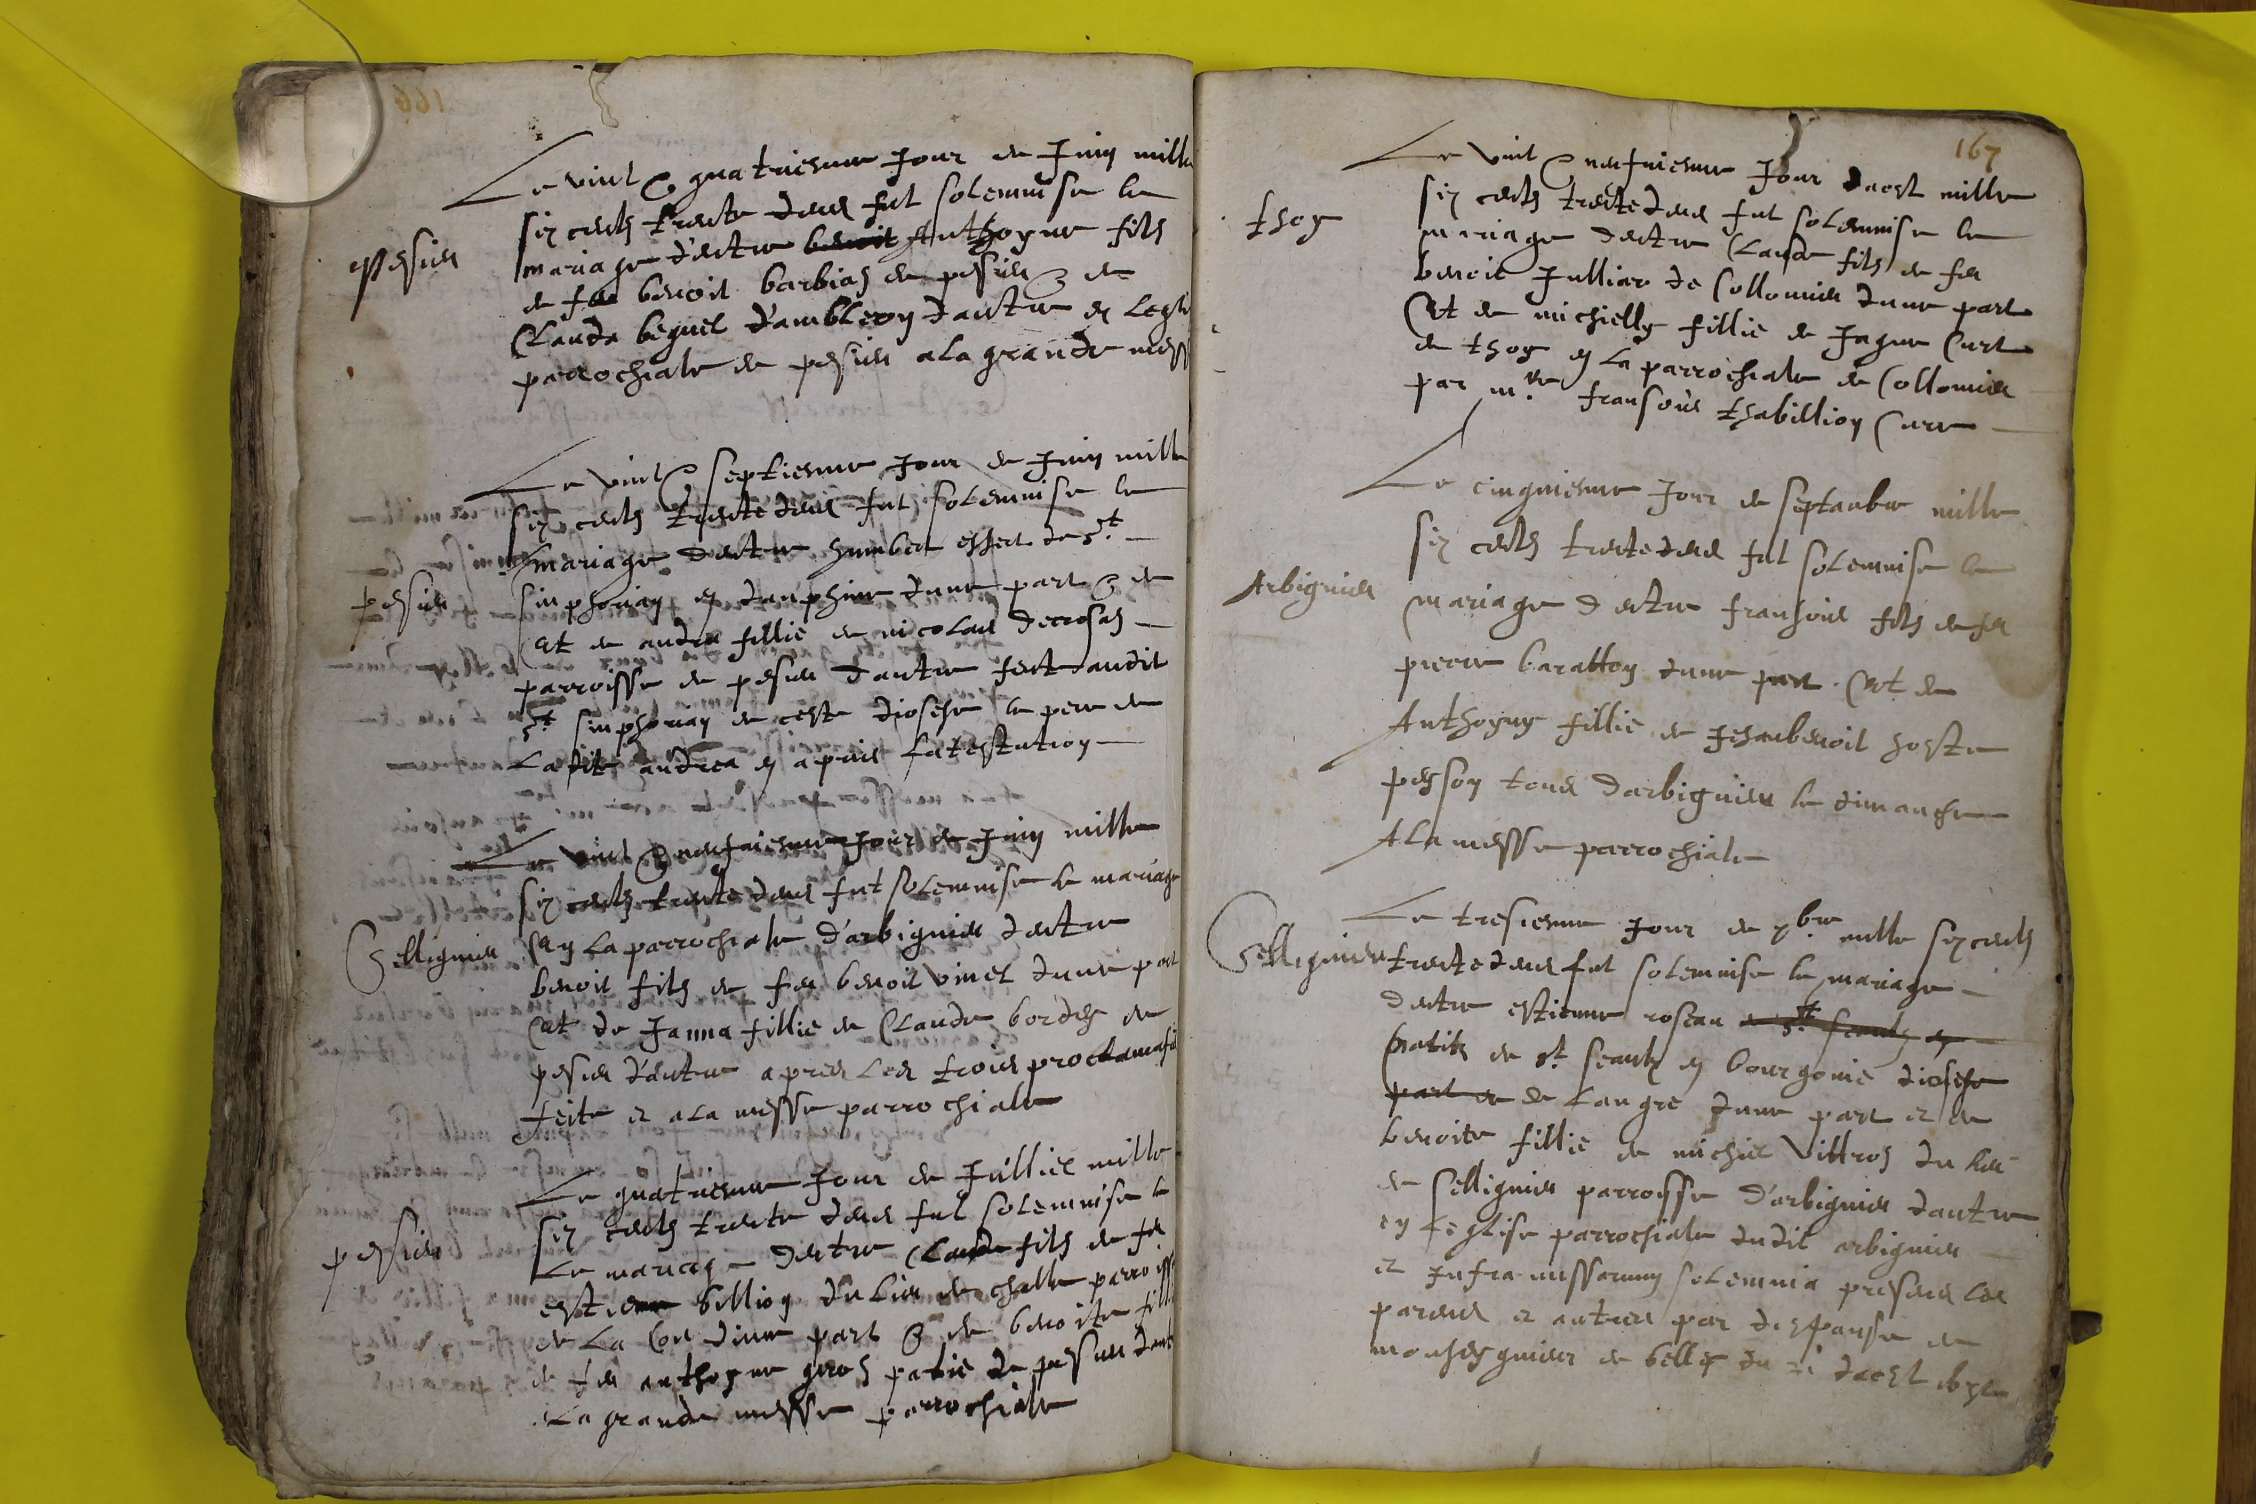 Le vint & quatriesme Jour de Juin mille
six cents trente deus fut solemnise le
pesieu
mariage d'entre benoit Anthoyne fils
de feu benoit barbias de pesieu & de
Clauda beguel d'ambleon d'autre en l'egli
parrochiale de pesieu a la grande mess
Le vint & septiesme Jour de Juin mille
six cents trente deus fut solemnise le
mariage d'entre humbert essert de St
pesieu
simphorian en dauphine d'une part & de
et de andrea fillie de nicolas decrosas
parroisse de pesieu d'autre fert audit
St simphorian de ceste diosese le pere de
Ladite andrea en apries l'atestation
Le vint & neufviesme Jour de Juin mille
six cents trente deus fut solemnise le mariage
Sellignieu
en la parrochiale d'arbignieu d'entre
benoit fils de feu benoit vinet d'une part
et de Janna fillie de Claude bordes de
pesieu d'autre apres les trois proclamasi
feite et a la messe parrochiale
Le quatriesme Jour de Julliet mille
six cents trente deus fut solemnise le
pesieu
Le mariage d'entre Claude fils de feu
estienne billion du lieu de challe parroiss
de La d'une part & de benoite filli
de feu anthoyne gros patie de pesieu d'aut
La grande messe parrochiale
167
Le vint & neufviesme Jour d'aost mille
thoy
six cents trente deus fut solemnise le
mariage d'entre Claude fils de feu
benoit Julliar de Collomieu d'une part
Et de michielly fillie de Jaque Curt
de thoy en la parrochiale de Collomieu
par mre fransois thabillion Cure
Le cinquiesme Jour de septanbre mille
six cents trente deus fut solemnise le
Arbignieu
mariage d'entre fransois fils de feu
pierre baratton d'une part. Et de
Anthoyny fillie de Jehanbenoit hoste
person tous d'arbignieu le dimanche
A La messe parrochiale
Le tresiesme Jour de bre mille six cents
Sellignieu
trente deus fut solemnise le mariage
d'entre estienne rosean de St seants en
natif de St seants en bourgonie diosese
part et de Langre d'une part et de
benoite fillie de michiel vittros du lieu
de sellignieu parroisse d'arbignieu d'autre
en l'eglise parrochiale dudit arbignieu
et Infra missarum solemnia presens les
parens et autres par dispanse de
monsegnieur de belley du d'aost